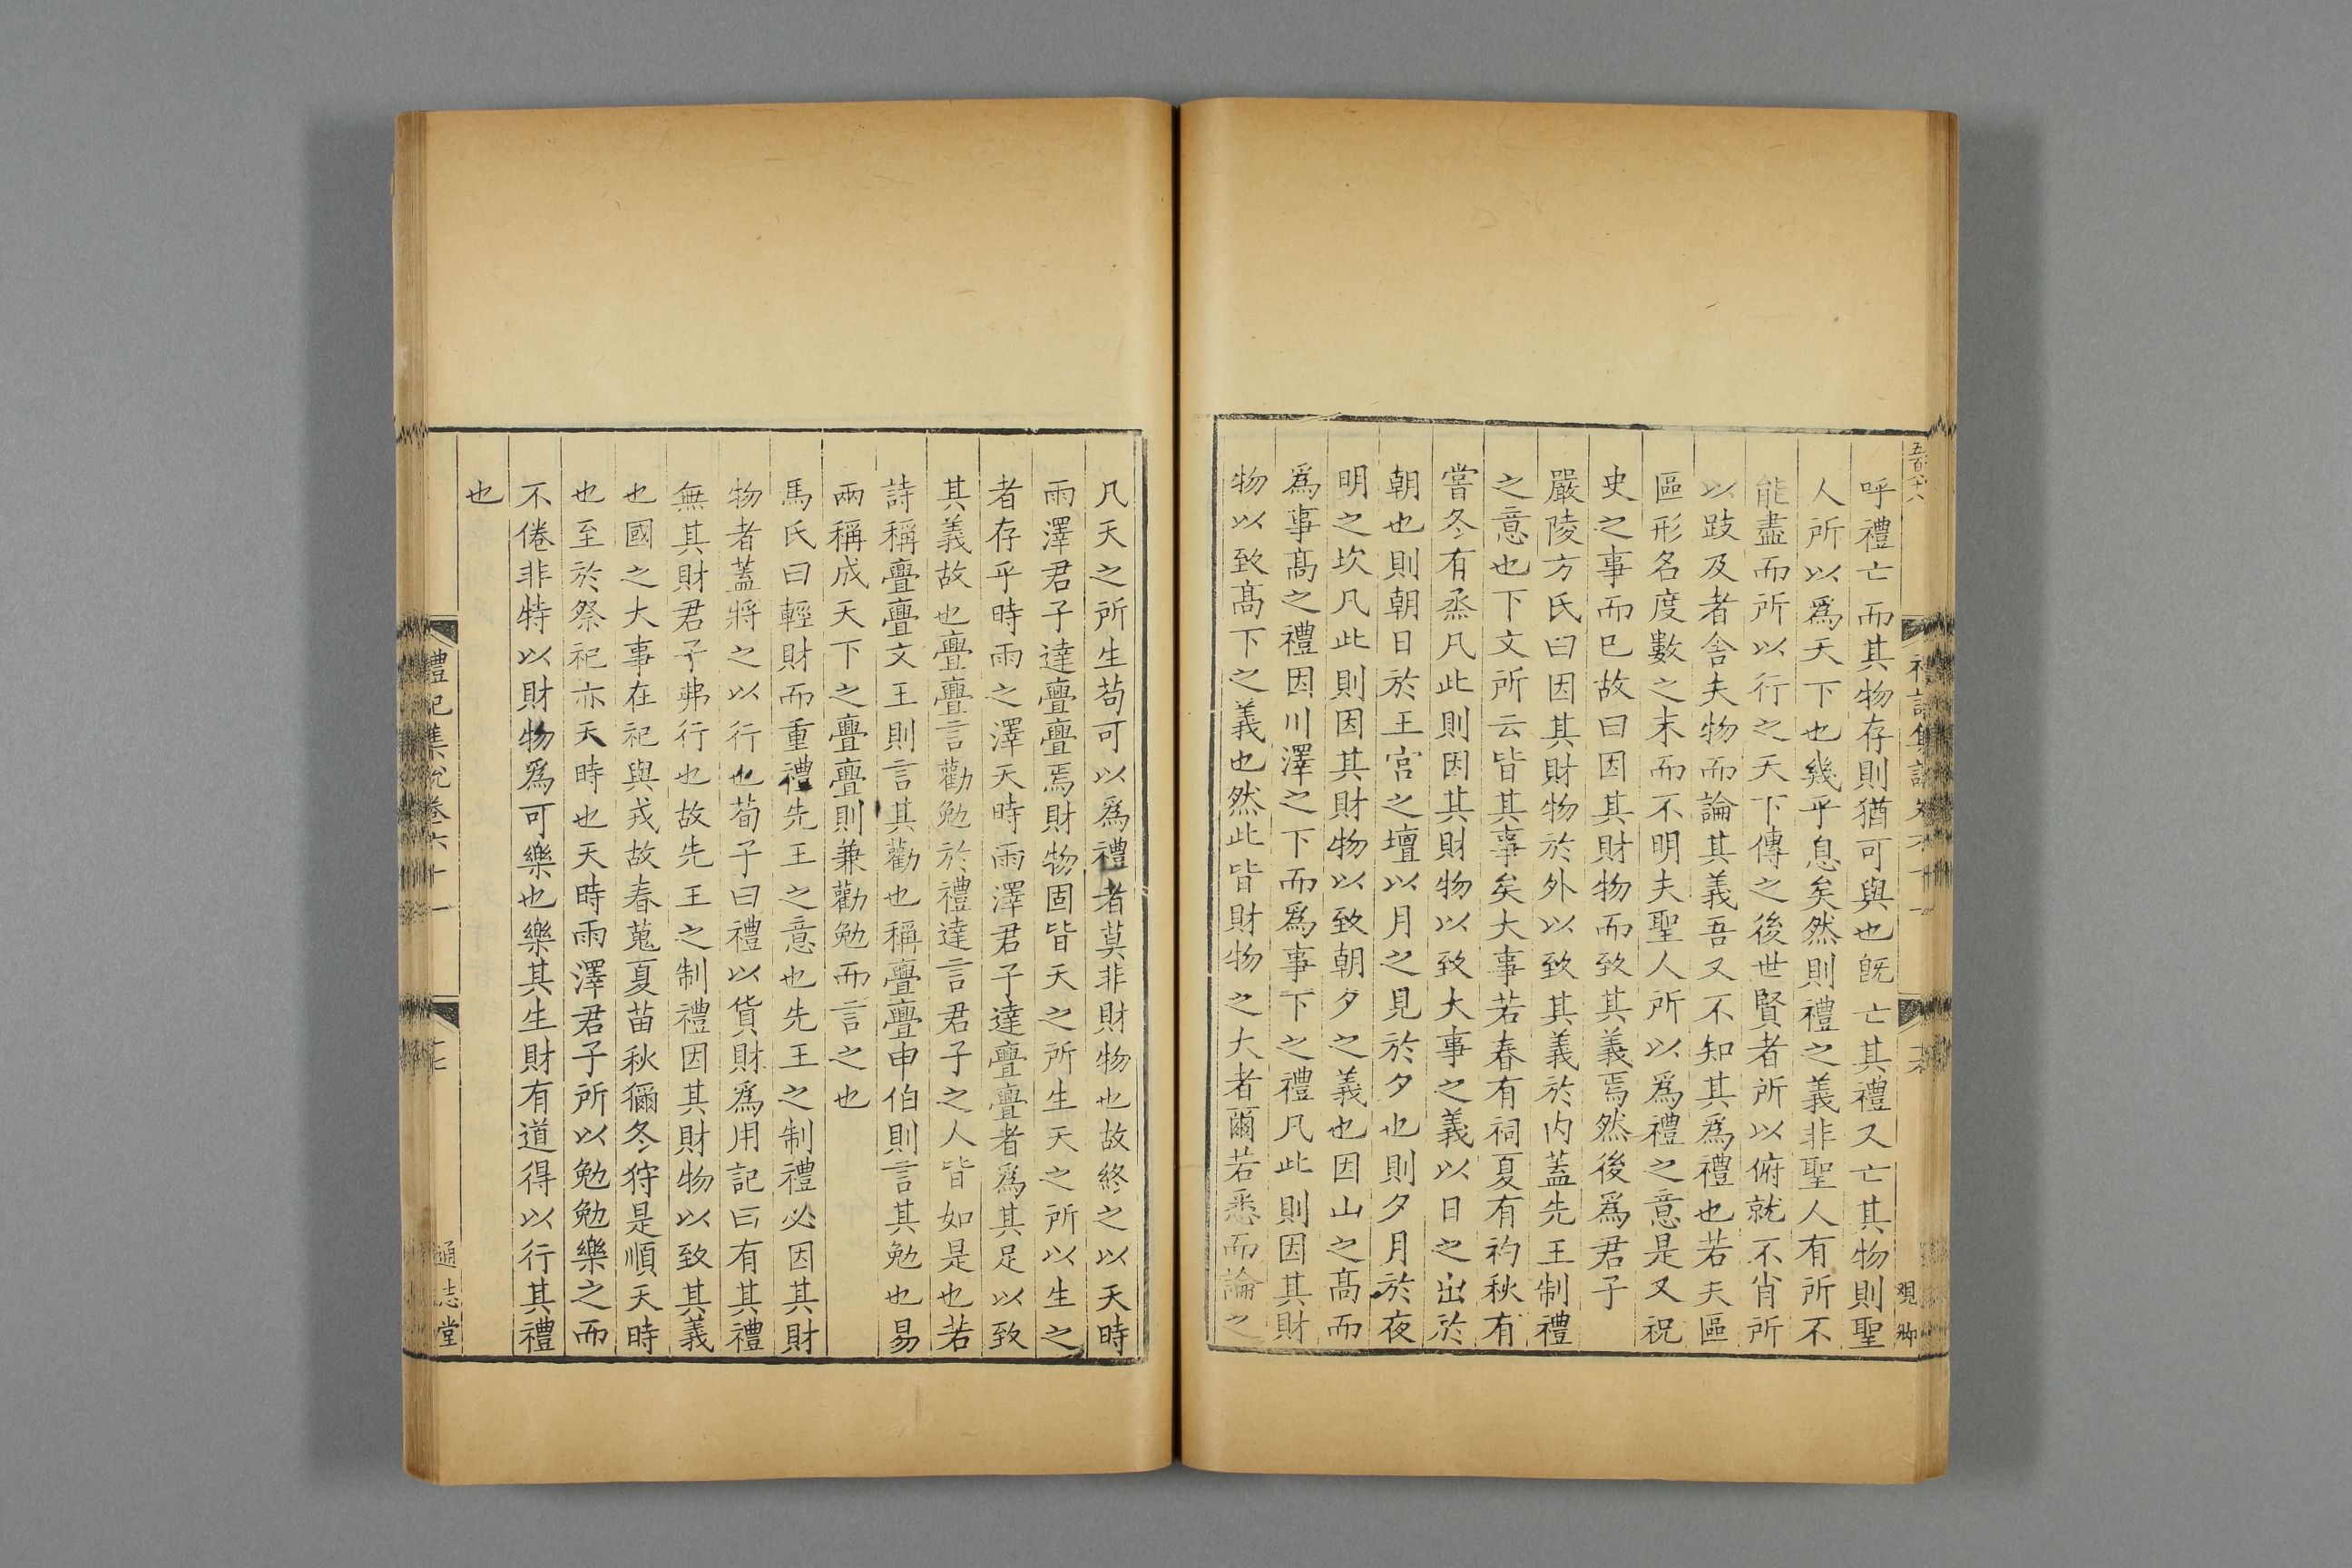 呼禮亡而其物存則猶可與也旣亡其禮又亡其物則聖
人所以爲天下也幾乎息矣然則禮之義非聖人有所不
能盡而所以行之天下傳之後世賢者所以俯就不肖所
以跂及者舍夫物而論其義吾又不知其爲禮也若夫區
區形名度數之末而不明夫聖人所以爲禮之意是又祝
史之事而已故曰因其財物而致其義焉然後爲君子
嚴陵方氏曰因其財物於外以致其義於内蓋先王制禮
之意也下文所云皆其事矣大事若春有祠夏有礿秋有
嘗冬有烝凡此則因其財物以致大事之義以日之出於
朝也則朝日於王宮之壇以月之見於夕也則夕月於夜
明之坎凡此則因其財物以致朝夕之義也因山之髙而
爲事髙之禮因川澤之下而爲事下之禮凡此則因其財
物以致髙下之義也然此皆財物之大者爾若悉而論之
凡天之所生苟可以爲禮者莫非財物也故終之以天時
雨澤君子達亹亹焉財物固皆天之所生天之所以生之
者存乎時雨之澤天時雨澤君子達亹亹者爲其足以致
其義故也亹亹言勸勉於禮達言君子之人皆如是也若
詩稱亹亹文王則言其勸也稱亹亹申伯則言其勉也易
兩稱成天下之亹亹則兼勸勉而言之也
馬氏曰輕財而重禮先王之意也先王之制禮必因其財
物者蓋將之以行也荀子曰禮以貨財爲用記曰有其禮
無其財君子弗行也故先王之制禮因其財物以致其義
也國之大事在祀與戎故春蒐夏苗秋獮冬狩是順天時
也至於祭祀亦天時也天時雨澤君子所以勉勉樂之而
不倦非特以財物爲可樂也樂其生財有道得以行其禮
也
禮記集說卷六十一
通志堂